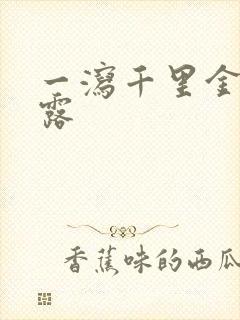 一瀉千里金
露
香蕉味的西瓜